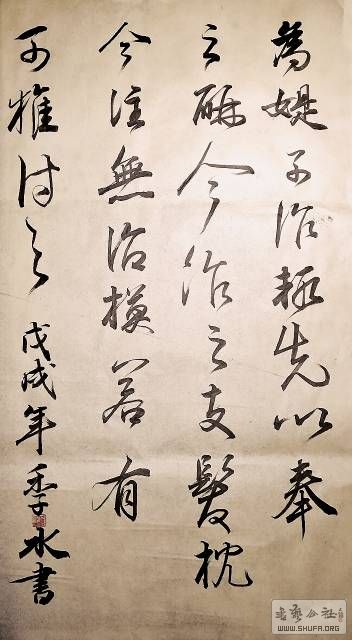 子治極先以奉
今作之支髮枕
今往無治模若有
可推付之 戊戌年季水書
書藝公社
WWW.SHUFA.ORG